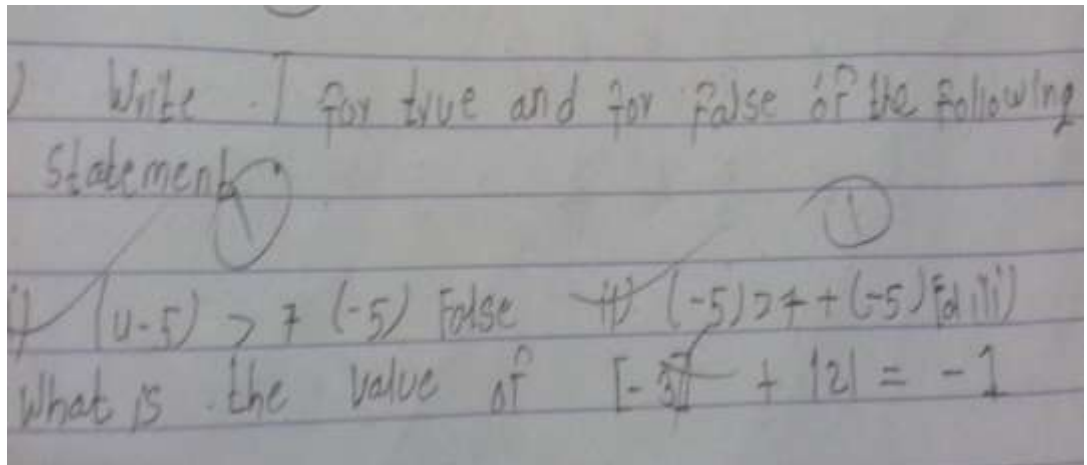 ) Write T for true and for false of the following
statement
①
①
i) (4-5) > 7 (-5) False ii) (-5) > 7 + (-5)
What is the value of [-3] + |2| = -1